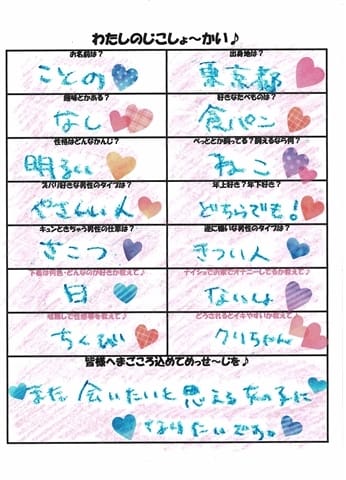 わたしのじこしょ～かい♪
お名前は?
出身地は?
ことの
東京都
趣味とかある?
好きなたべものは?
なし
食パン
性格はどんなかんじ?
ぺっととか飼ってる?飼えるなら何?
明るい
ねこ
ズバリ好きな男性のタイプは?
年上好き?年下好き?
やさしい人
どちらでも!
キュンときちゃう男性の仕草は?
逆に嫌いな男性のタイプは?
さこつ
きつい人
下着は何色・どんなのが好きか教えて♪
ナイショでお家でオナニーしてるか教えて♪
白
ないしょ
咀嚼して性感帯を教えて♪
どうされるとイキやすいか教えて♪
ちくび
クリちゃん
皆様へまごころ込めてめっせ～じを♪
また会いたいと思える女の子に
なりたいです。